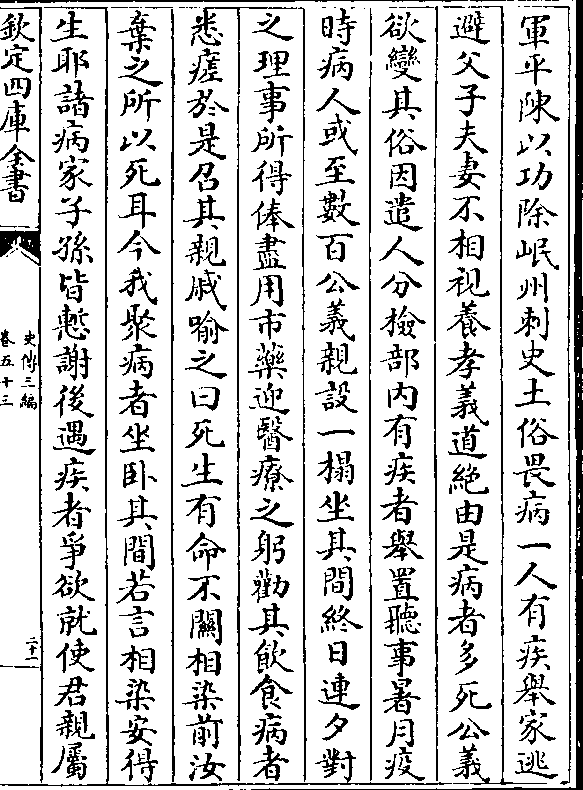 軍平陳以功除岷州刺史土俗畏病一人有疾舉家逃
避父子夫妻不相視養孝義道絶由是病者多死公義
欲變其俗因遣人分檢部内有疾者舉置聽事暑月疫
時病人或至數百公義親設一榻坐其間終日連夕對
之理事所得俸盡用市藥迎醫療之躬勸其飲食病者
悉瘥於是召其親戚喻之曰死生有命不關相染前汝
棄之所以死耳今我聚病者坐卧其間若言相染安得
生耶諸病家子孫皆慙謝後遇疾者爭欲就使君親屬
欽定四庫全書
史傳三編
卷五十三
二十一